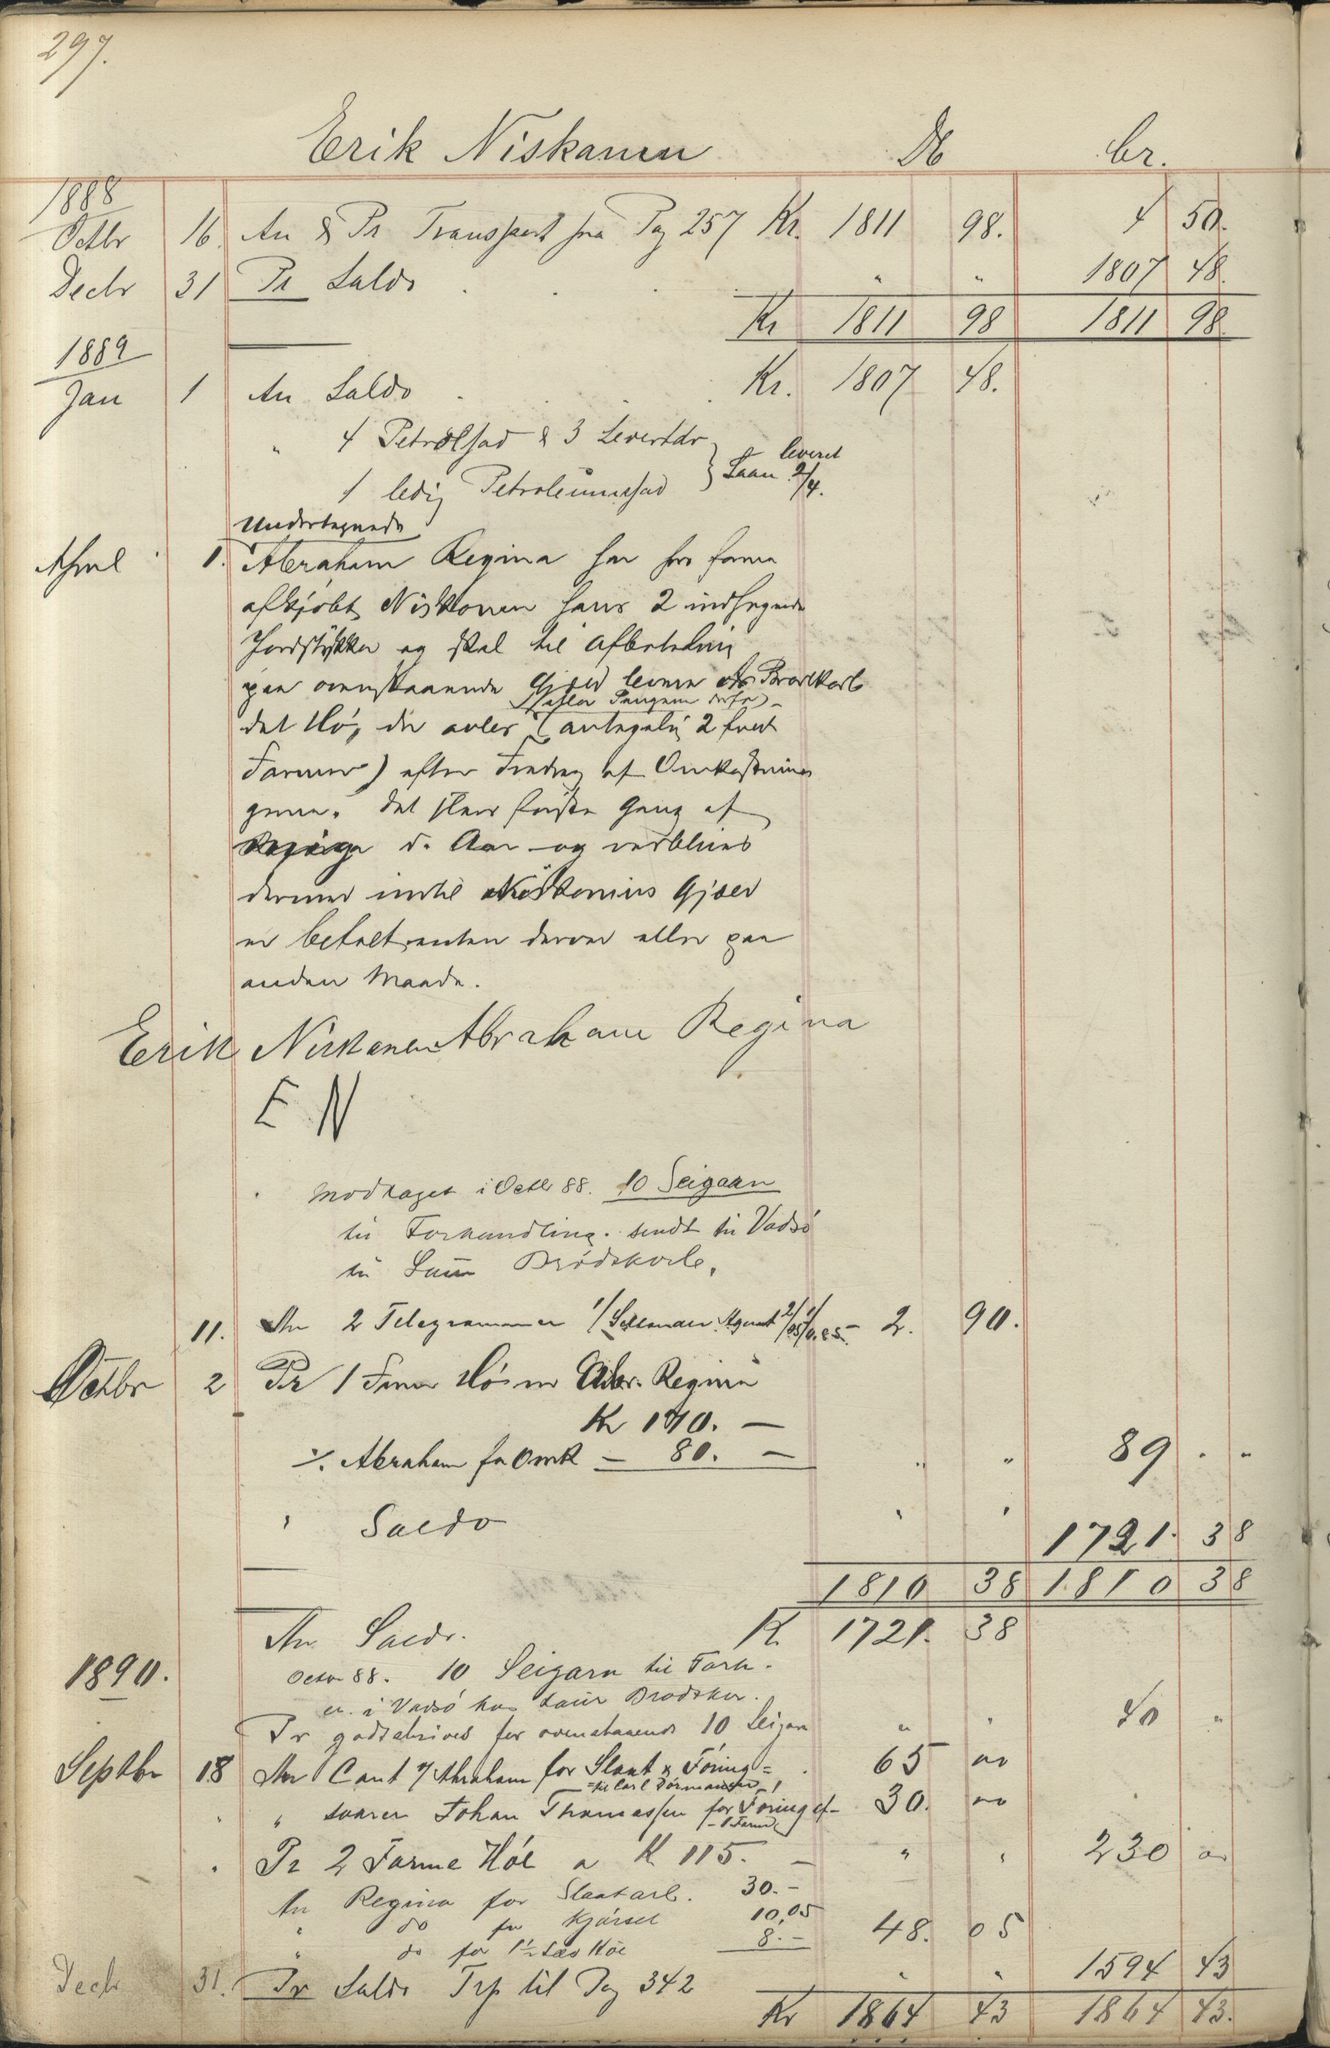 297.
Erik Niskanen Db cr.
1888
Octbr 16 An & Pr Transport fra Pag 257 Kr. 1811 98. 4 50.
Decbr 31 Pr Saldo . . . " " 1807 48.
Kr 1811 98 1811 98
1889
Jan 1 An Saldo . . . Kr. 1807 48.
" 4 Petrolfad & 3
1 ledig Petroleumsfad } Laan leveret 2/4.
Undertegnede
April 1. Abraham Regina har
afkjøbt Niskanen hans 2 indhegnede
Jordstykker og skal til afbetaling
paa ovenstaaende Gjæld levere
det Hø, der avles (antagelig 2
Farmer) efter Fradrag af Omkostnin
gerne. Det sker første Gang af
d. Aar og vedblives
dermed indtil Niskanens Gjæld
er betalt enten derved eller paa
anden Maade.
Erik Niskanen Abraham Regina
E N
Modtaget i Octbr 88. 10 Seigarn
til Forhandling. sendt til Vadsö
til Brödskorb.
11. An 2 Telegrammer 2. 90.
Octbr 2 Pr 1 Hö Abr. Regina
Kr 170. —
% Abraham for Omk — 80. — " " 89 . "
" Saldo " " 1721. 38
1810 38 1810 38
An Saldo. K. 1721. 38
1890.
Octbr 88. 10 Seigarn til Forh.
er i Vadsö hos
Pr godskrives for ovenstaaende 10 Seigarn " " 40 "
Septbr 18 An Cont % Abraham for Slaat & Föring = . 65 00
" " svarer Johan Thomassen for Föring af 30. 00
" Pr 2 Farme Höe a K 115. — " " 230 00
An Regina for Slaatarb. 30.-
" do for Kjörsel 10,05
" do for 1½ Læs Höe 8.- 48. 05
Decbr 31. Pr Saldo Trp til Pag 342 " " 1594 43
Kr 1864 43 1864 43.